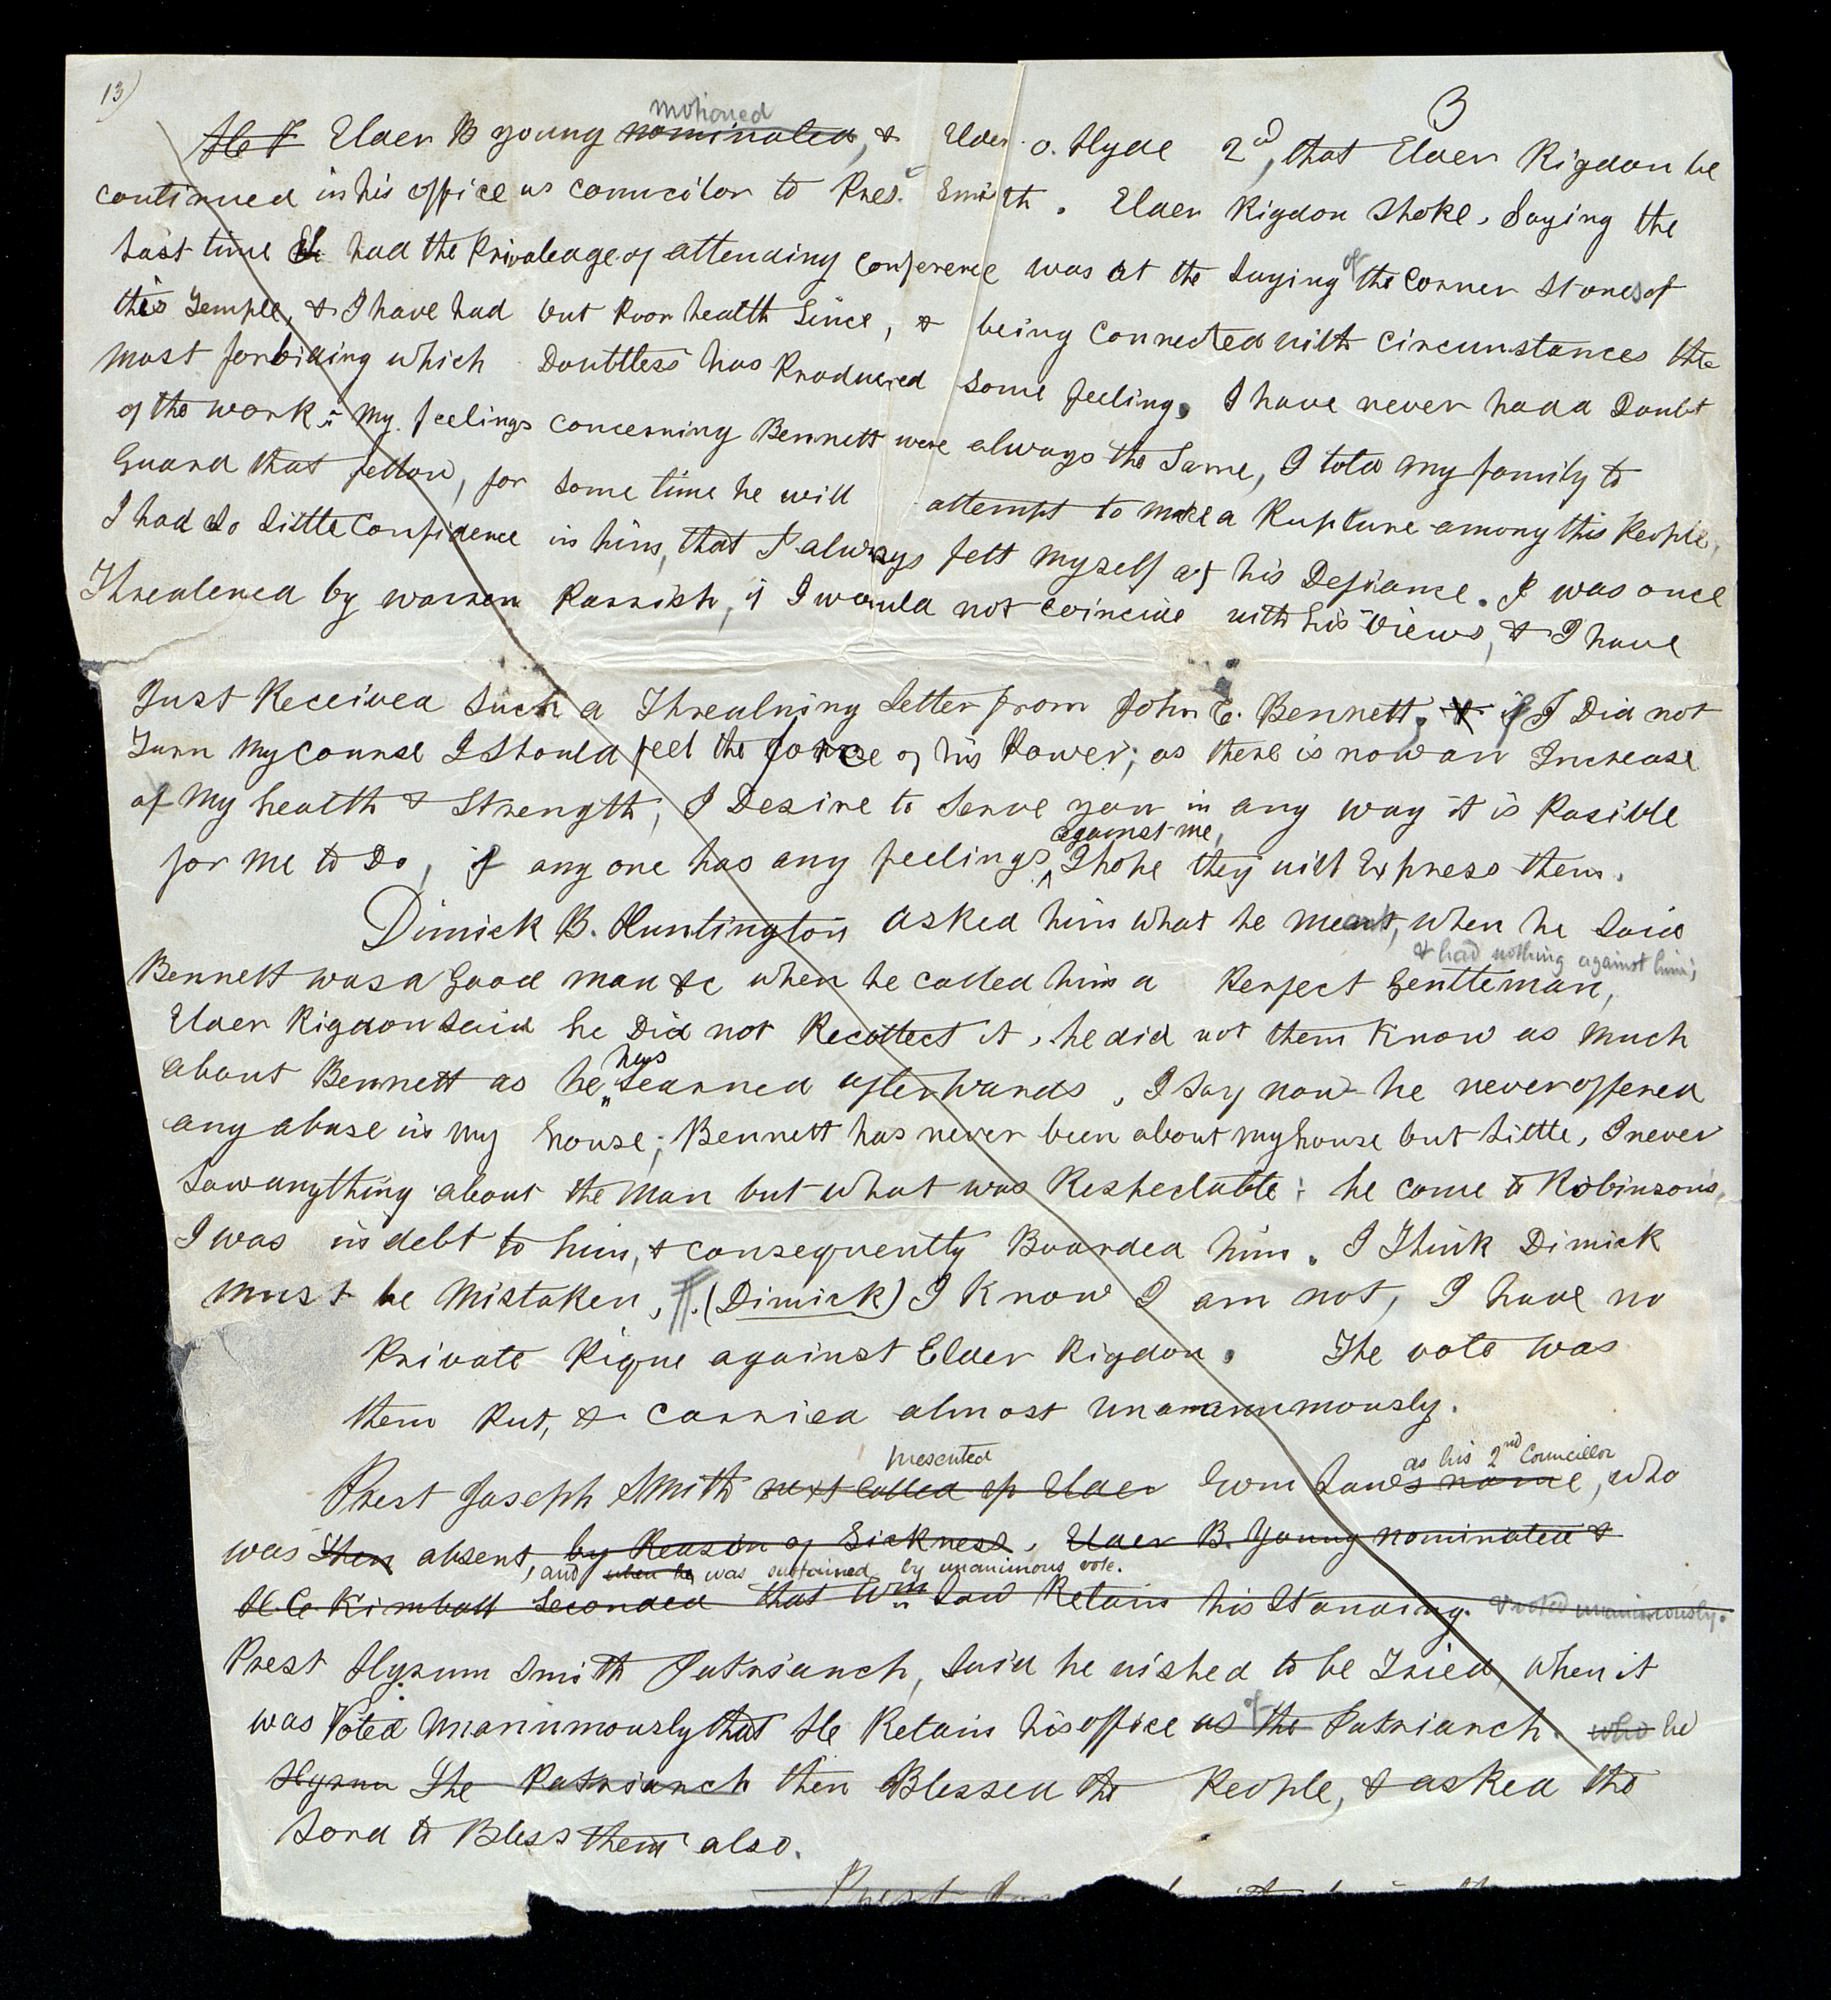 13)
3
motioned
He T Elder B young nominated, & Elder O. Hyde 2d, that Elder Rigdon be
continued in his office as councilor to Pres.t Smith. Elder Rigdon Spoke, Saying the
Last time he had the Privaleage of attending conference was at the Laying of the corner Stones of
this Temple, & I have had but Poor health Since, & being connected with circumstances the
most forbiding which Doubtless has Produced some feeling, I have never had a Doubt
of the work. My feelings concerning Bennett were always the Same, I told my family to
Guard that fellow, for some time he will attempt to make a Rupture among this People,
I had So Little Confidence in him, that I always felt myself at his Defiance. I was once
Threatened by warren Parrish, if I would not coincide with his views, & I have
Just Received Such a Threatning Letter from John C. Bennett, & if I Did not
Turn my course I Should feel the force of his Power; as there is now an Increase
of My health & Strength, I Desire to Serve you in any way it is Posible
against me,
for me to Do, if any one has any feelings I hope they will Express them.
Dimick B. Huntington asked him what he meant, when he Said
& had nothing against him;
Bennett was a Good man &c when he called him a Perfect Gentleman,
Elder Rigdon Said he Did not Recollect it, he did not then know as much
has
about Bennett as he Learned afterwards, I Say now he never offered
any abuse in my house; Bennett has never been about my house but Little, I never
Saw anything about the Man but what was Respectable; he come to Robinsons,
I was in debt to him, & consequently Boarded him. I Think Dimick
must be Mistaken, (Dimick) I Know I am not, I have no
Private Pique against Elder Rigdon. The vote was
then Put, & carried almost unannumously.
presented as his 2nd Councillor
Prest Joseph Smith next called up Elder Wm Law's name, who
was then absent, by Reason of Sickness. Elder B. Young nominated &
, and when he was sustained by unanimous vote.
H. C. Kimball Seconded that Wm Law Retain his Standing. & voted unanimously.
Prest Hyrum Smith Patriarch, Said he wished to be Tried, when it
of
was Voted Unanumously that He Retain his office as the Patriarch. who he
Hyrum The Patriarch then Blessed the People, & asked the
Lord to Bless them also.
Prest